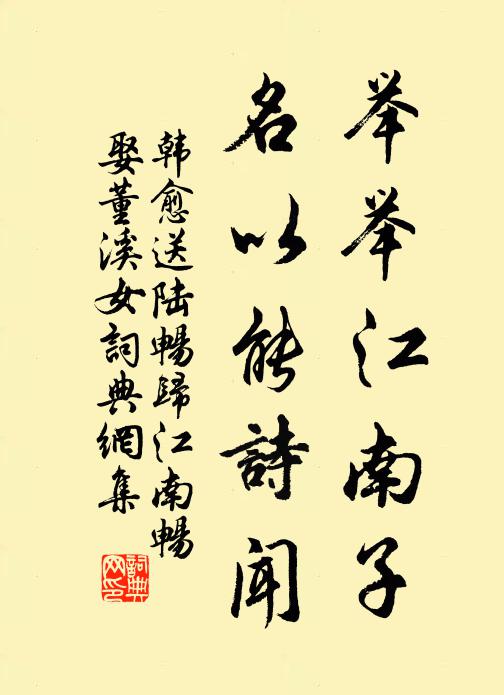 举举江南子
名以能詩闻
韩愈送陆暢歸江南暢
娶董溪女詞典網集
詞典网印